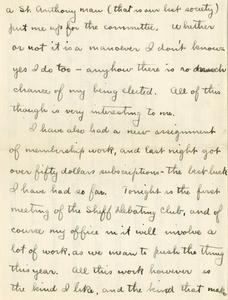 a St. Anthony man (that is our best society)
put me up for the committee. Whether
or not it is a manoever I don't know
yes I do too - anyhow there is no much
chance of my being elected. All of this
though is very interesting to me.
I have also had a new assignment
of membership work, and last night got
over fifty dollars subscriptions - the best luck
I have had so far. Tonight is the first
meeting of the Sheff Debating Club, and of
course my office in it will involve a
lot of work, as we mean to push the thing
this year. All this work however is
the kind I like, and the kind that make